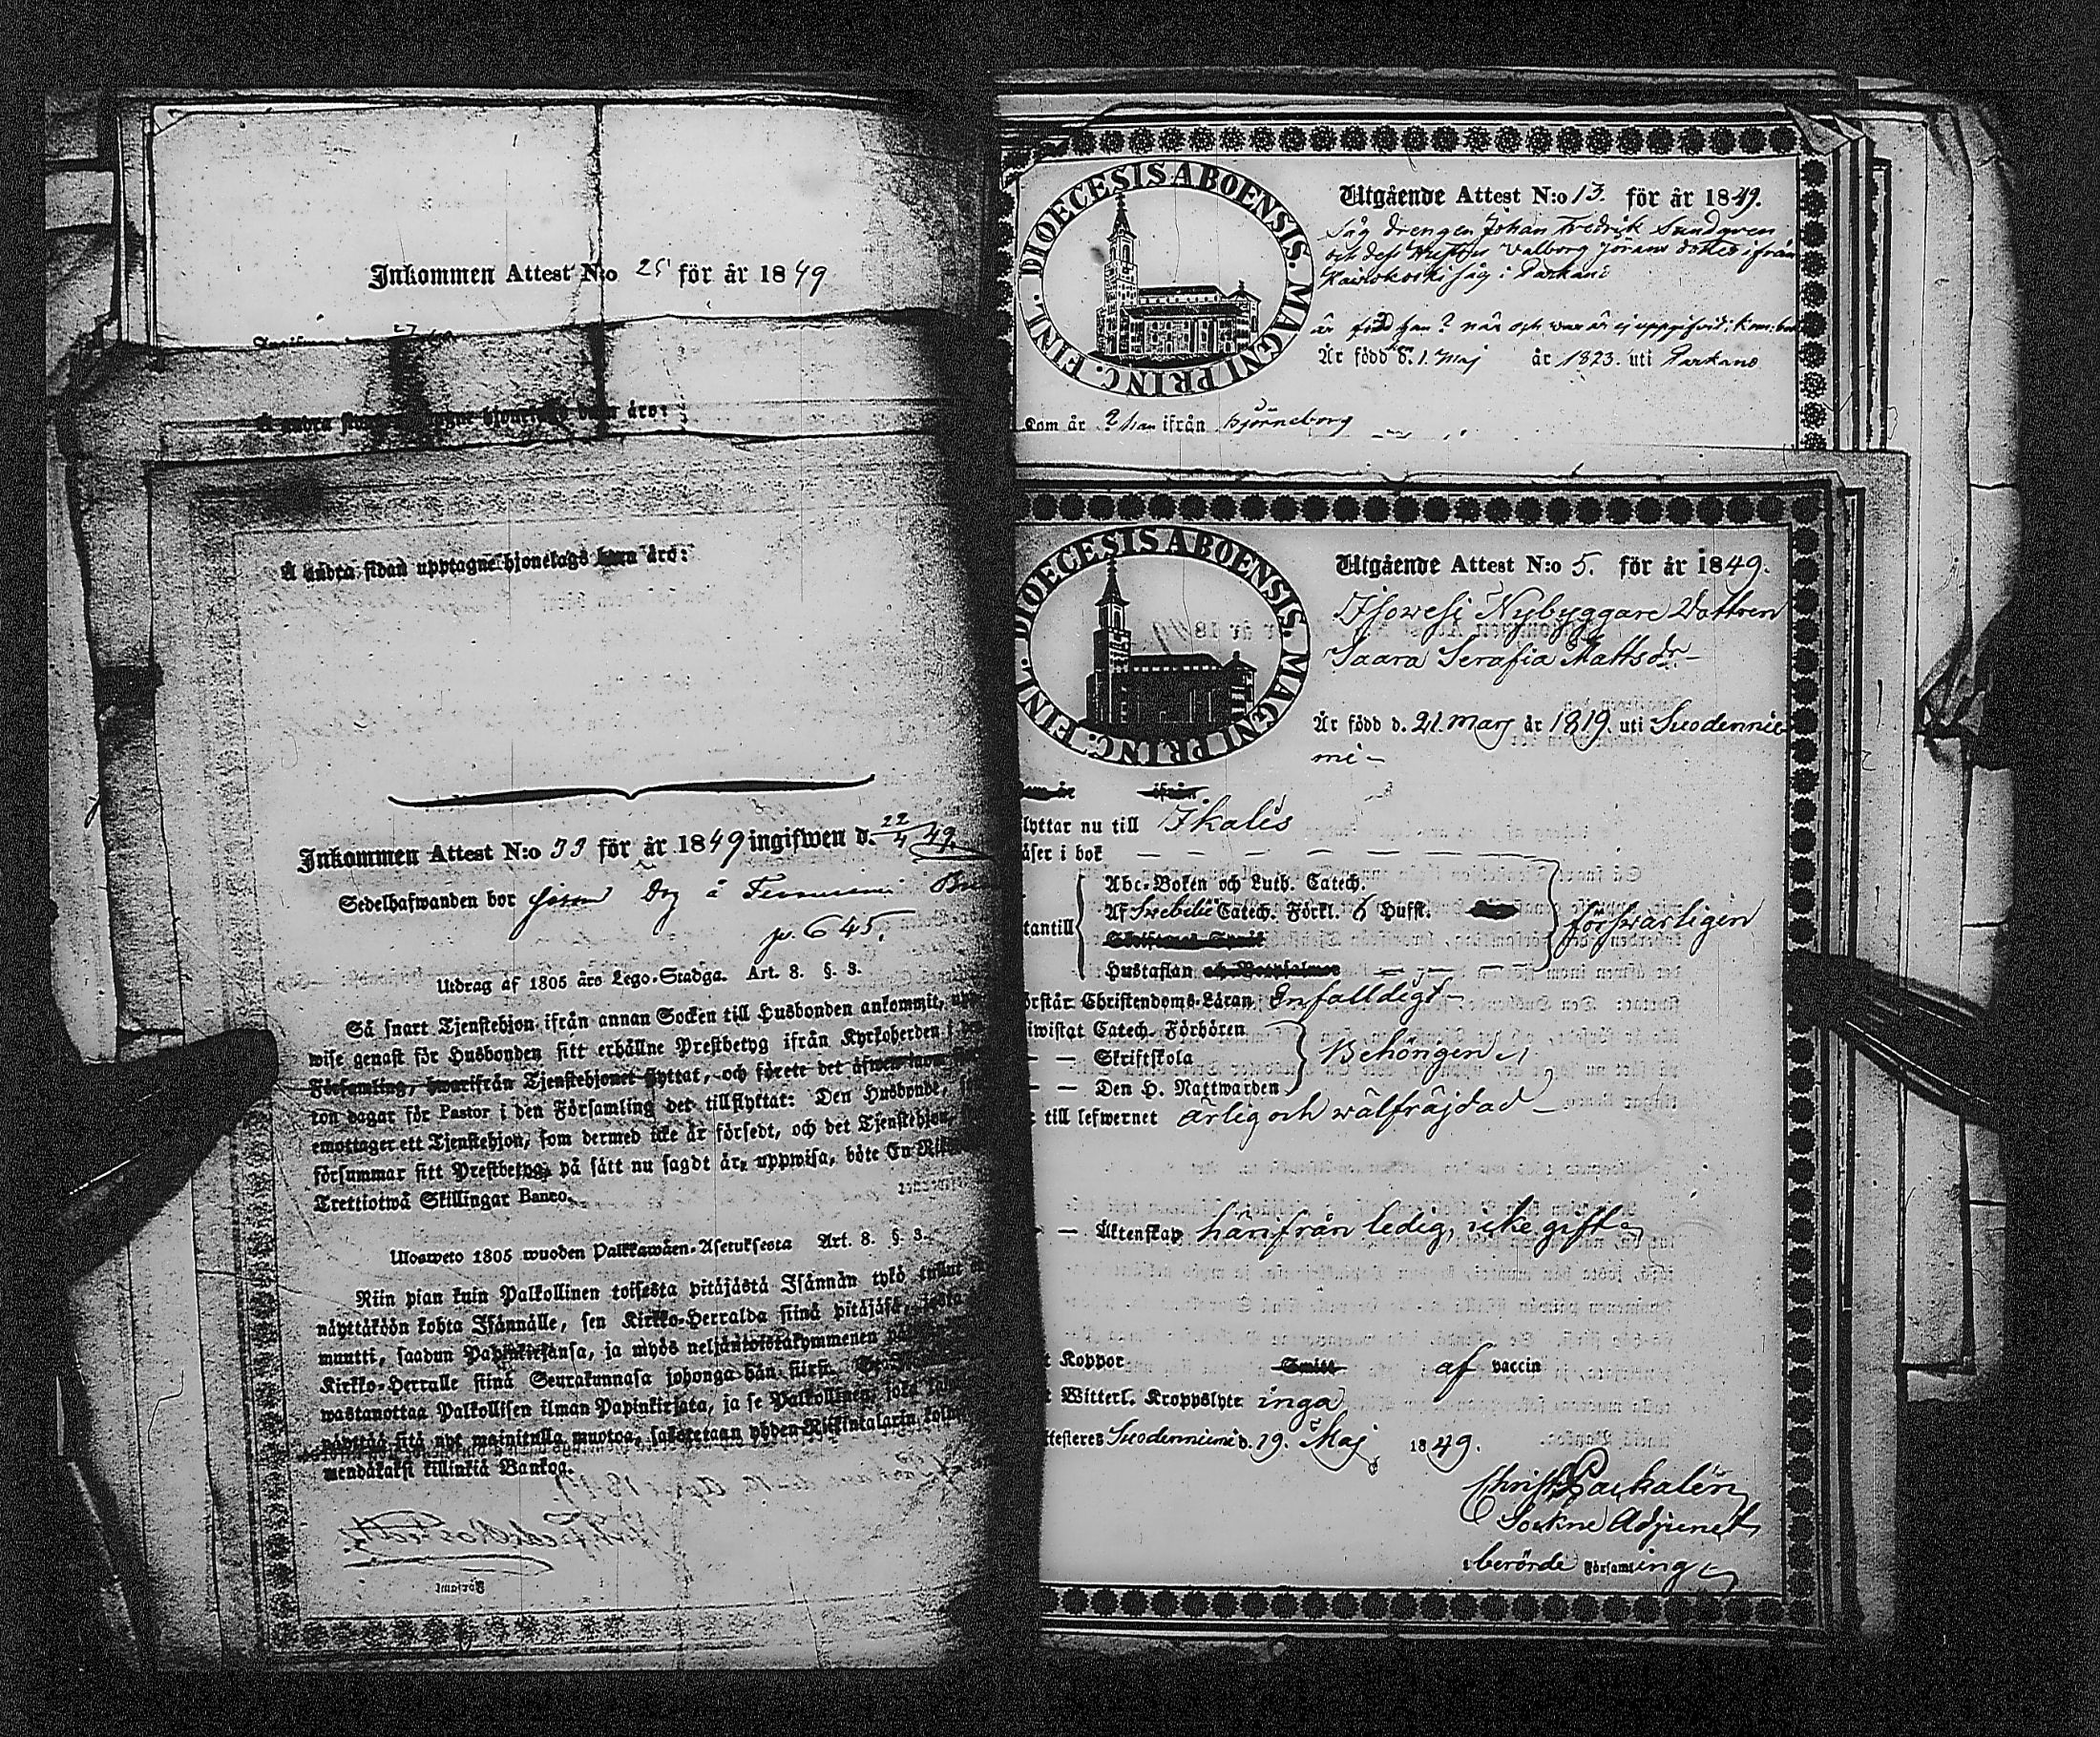 Inkommen Attest N:o 25 för år 1849
Å andra sidan upptagne hjonelags barn äro:
Inkommen Attest N:o 33 för år 1849 ingifwen d. 22/4 49.
Sedelhafwanden bor
p. 645.
Utdrag af 1805 års Lego-Stadga. Art. 8. §. 3.
Så snart Tjenstehjon ifrån annan Socken till Husbonden ankommit,
wise genast för Husbonden sitt erhållne Prestbetyg ifrån Kyrkoherden i
Församling, hwarifrån Tjenstehjonet flyttat, och förete det äfwen inom
ton dagar för Pastor i den Församling det tillflyttat: Den Husbonde,
emottager ett Tjenstehjon, som dermed icke är försedt, och det Tjenstehjon,
försummar sitt Prestbetyg, på sätt nu sagdt är, uppwisa, böte En
Trettiotwå Skillingar Banco.
Ulosweto 1805 wuoden Palkkawäen-Asetuksesta Art. 8. §. 3.
Niin pian kuin Palkollinen toisesta pitäjästä Isännän tykö tullut
näyttäköön kohta Isännälle, sen Kirkko-Herralda siinä pitäjäsä, josta
muutti, saadun Papinkirjansa, ja myös neljäntoistakymmenen
Kirkko-Herralle siinä Seurakunnasa johonga hän siirsi.
wastanottaa Palkollisen ilman Papinkirjata, ja se Palkollinen, joka
näyttää sitä nyt mainitulla muotoa, sakotetaan yhden Riikintalarin
mendäkaksi killinkiä Bankoa.
DIOECESIS ABOENSIS. MAGNI PRINC. FINL.
Utgående Attest N:o 13. för år 1849.
Såg drengen Johan Fredrik Sundgren
och dess Hustru Valborg Jörans dotter ifrån
såg i Parkano
är född han? när och war är ej uppgifvit:
Är född d. 1. Maj år 1823. uti Parkano
Kom år ? han ifrån Björneborg
DIOECESIS ABOENSIS. MAGNI PRINC. FINL.
Utgående Attest N:o 5. för år 1849.
Isowesi Nybyggare Dottren
Saara Serafia Mattsdr
Är född d. 21. Mars år 1819. uti Suodennie
mi
ifrån
lyttar nu till Ikalis
äser i bok
Abc-Boken och Luth. Catech.
Af Swebilii Catech. Förkl. 6 Hufst.
tantill
försvarligen
Hustaflan
örstår Christendoms-Läran Enfaldigt
iwistat Catech. Förhören
Skriftskola
Behörigen
Den H. Nattwarden
till lefwernet ärlig och wälfräjdad
Äktenskap hänifrån ledig, icke gift
t Koppor af vaccin
t Witterl. Kroppslyte inga
ttesteres Suodenniemi d. 19. Maj 1849.
Christ. Packalén
Sockne Adjunct
i berörde Församling